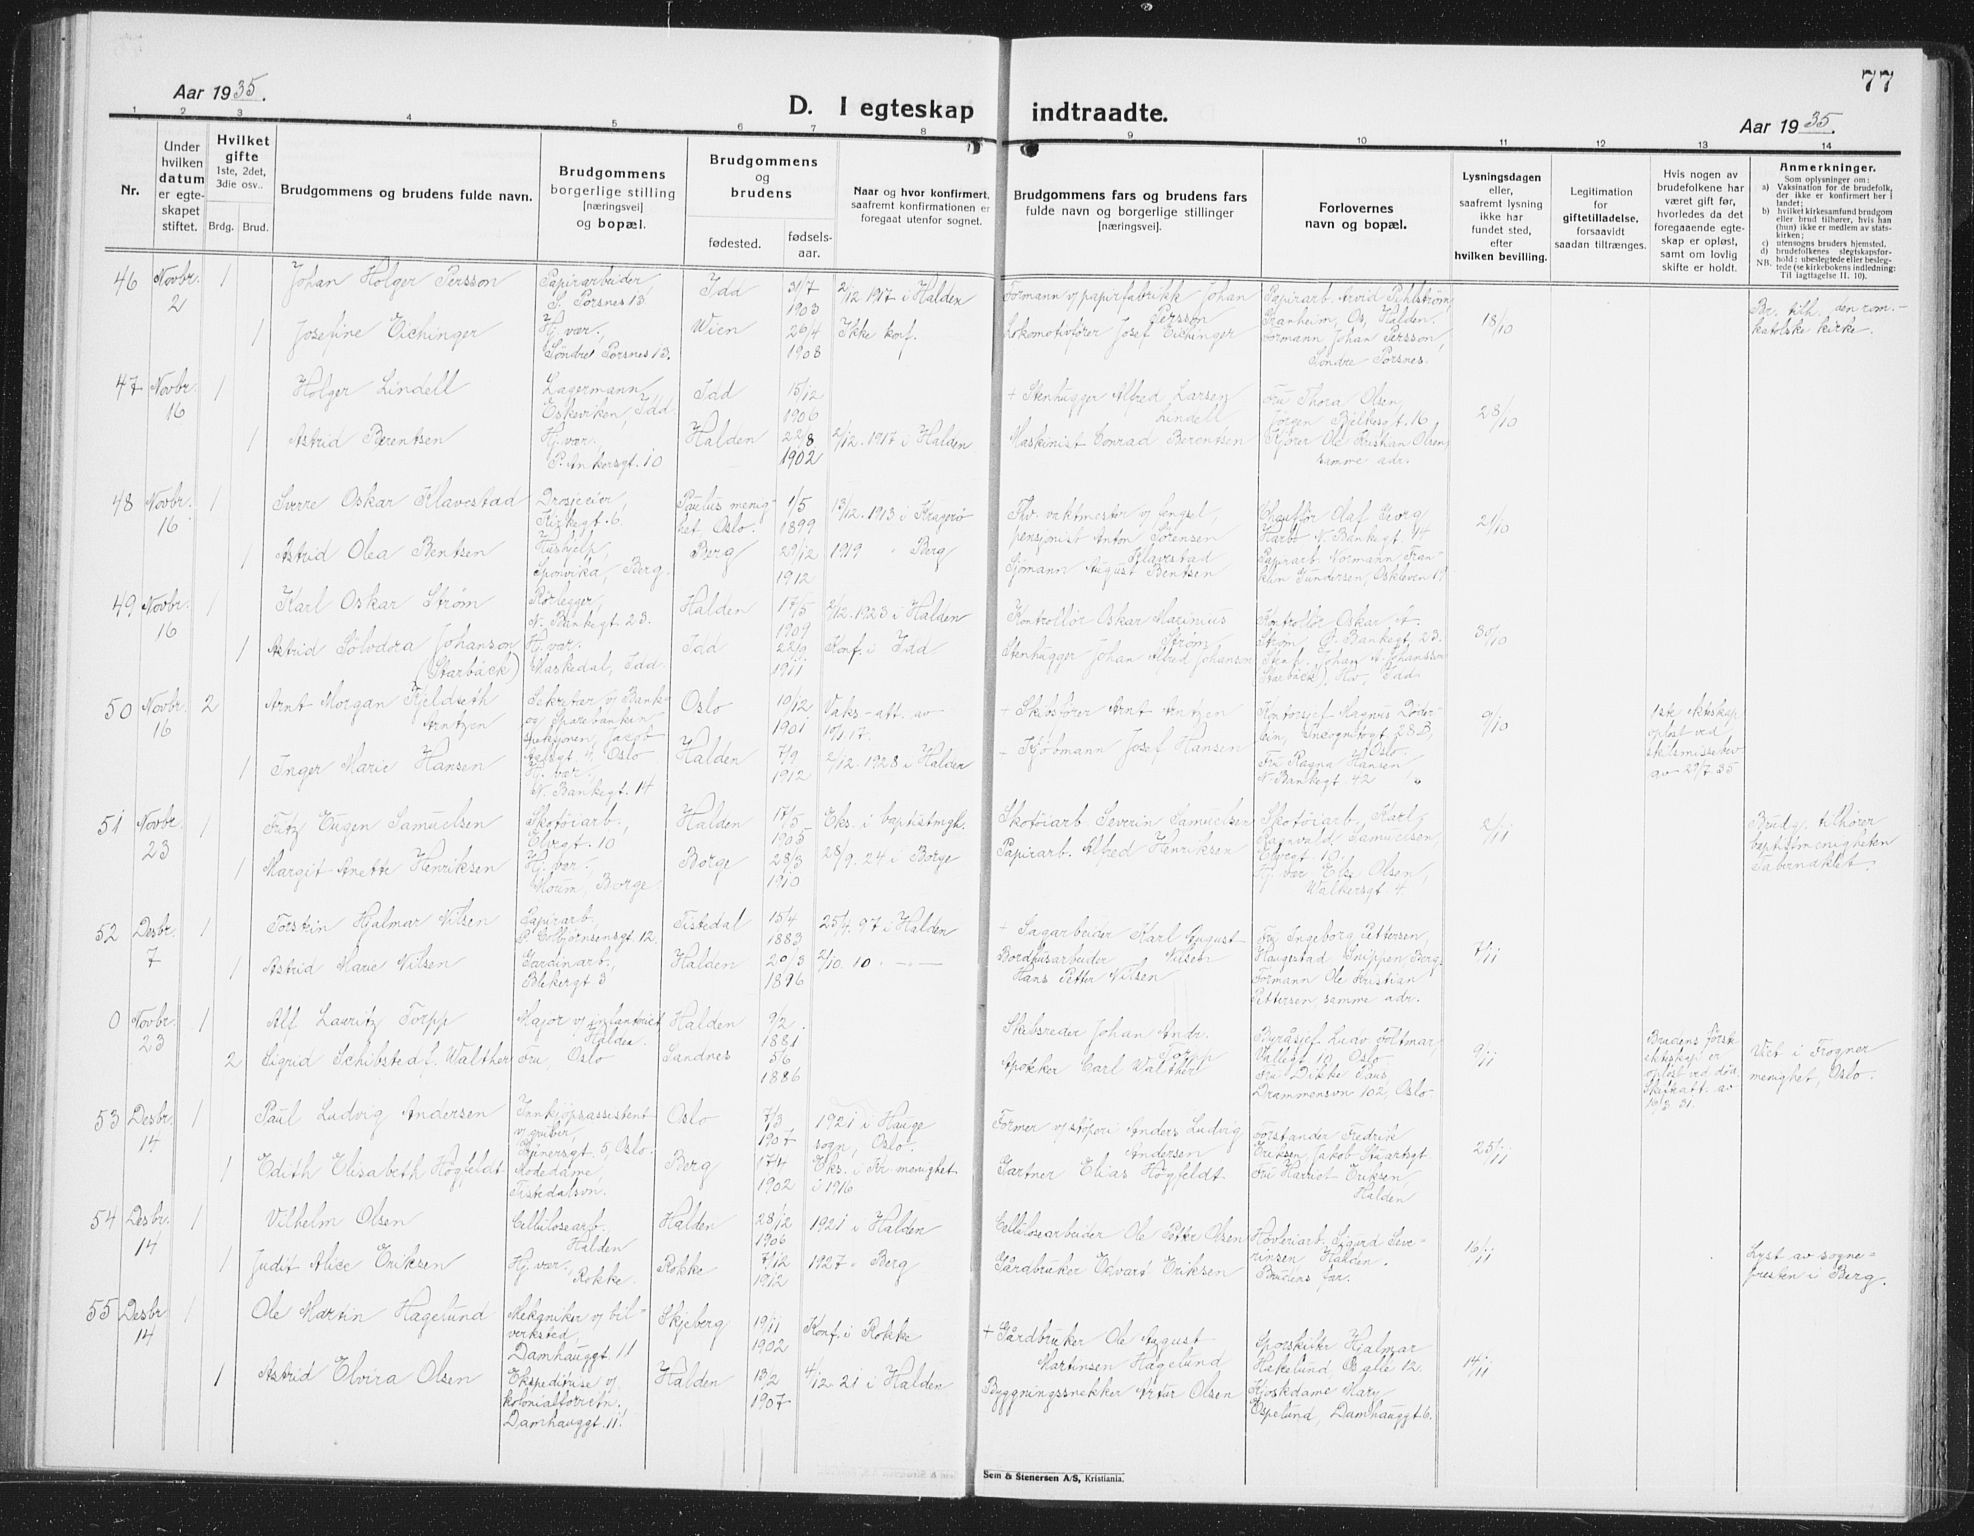 77
Aar 1935.
D. I egteskap indtraadte.
Aar 1935.
1 2 3 4 5 6 7 8 9 10 11 12 13 14
Nr.
Under hvilken datum er egteskapet stiftet.
Hvilket gifte 1ste, 2det, 3die osv..
Brdg. Brud.
Brudgommens og brudens fulde navn.
Brudgommens borgerlige stilling [næringsvei] og bopæl.
Brudgommens og brudens
fødested. fødselsaar.
Naar og hvor konfirmert, saafremt konfirmationen er foregaat utenfor sognet.
Brudgommens fars og brudens fars fulde navn og borgerlige stillinger [næringsvei].
Forlovernes navn og bopæl.
Lysningsdagen eller, saafremt lysning ikke har fundet sted, efter hvilken bevilling.
Legitimation for giftetilladelse, forsaavidt saadan tiltrænges.
Hvis nogen av brudefolkene har været gift før, hvorledes da det foregaaende egteskap er opløst, samt om lovlig skifte er holdt.
Anmerkninger.
Som oplysninger om:
a) Vaksination for de brudefolk, der ikke er konfirmert her i landet;
b) hvilket kirkesamfund brudgom eller brud tilhører, hvis han (hun) ikke er medlem av statskirken;
c) utensogns bruders hjemsted,
d) brudefolkenes slegtskapsforhold: ubeslegtede eller beslegtede (se kirkebokens indledning:
NB. Til iagttagelse II. 10).
46 Novbr. 2 1 Johan Holger Persson Papirarbeider S. Porsnes 13 Idd 31/7 1903 2/12 1917 i Halden Formann v/ papirfabrikk Johan Persson Papirarb. Arvid Pihlstrøm, Granheim, Os, Halden. 18/10 Br. tilh. den rom.-katolske kirke.
1 Josefine Eichinger Hj. vær. Søndre Porsnes 13. Wien 26/4 1908 Ikke konf. Lokomotivfører Josef Eichinger Formann Johan Persson, Søndre Porsnes.
47 Novbr. 16 1 Holger Lindell Lagermann, Eskeviken, Idd. Idd 15/12 1906 + Stenhugger Alfred Larsen Lindell Fru Thora Olsen, Jørgen Bjelkesgt. 16 28/10
1 Astrid Berentsen Hj. vær. P. Ankersgt. 10 Halden 22/8 1902 2/12. 1917 i Halden Maskinist Conrad Berentsen Kjører Ole Kristian Olsen, samme adr.
48 Novbr. 16 1 Sverre Oskar Klavestad Drosjeeier, Kirkegt. 6 Paulus menighet Oslo. 1/5 1899 13/12. 1913 i Kragerø Fhv. vaktmester v/ fengsel, pensjonist Anton Sørensen Klavestad Chauffør Olaf Georg Harbo N. Bankegt. 44 21/10
1 Astrid Olea Bentsen Hushjelp, Sponvika, Berg. Berg 29/12 1912 1919 " Berg Sjømann August Bentsen Papirarb. Normann Franklin Gundersen, Oskleven 19
49 Novbr. 16 1 Karl Oskar Strøm Rørlegger, N. Bankegt. 23. Halden 17/5 1909 2/12. 1923 i Halden Kontrollør Oskar Marinius Strøm Kontrollør Oskar A. Strøm Ø. Bankegt. 23. 30/10
1 Astrid Sølvdora Johanson (Starbäck) Hj. vær. Maskedal, Idd. Idd 22/9 1911 Konf. i Idd Stenhugger Johan Alfred Johanson Stenh. Johan A. Johansson (Starbäck), Hov, Idd
50 Novbr. 16 2 Arnt Morgan Kjeldseth Arntzen Sekretær v/ Bank- og Sparebankinspeksjonen, Jacob Aalsgt. 4, Oslo Oslo 10/12 1901 Vaks-att. av 10/1 17. + Skibsfører Arnt Arntzen Kontorsjef Magnus Døderlein, Incognitogt. 28B, Oslo. 9/10 1ste ekteskap opløst ved skilsmissebev. av 29/7 35
1 Inger Marie Hansen Hj. vær. N. Bankegt. 14 Halden 7/9 1912 2/12. 1928 i Halden + Kjøbmann Josef Hansen Fru Ragna Hansen, N. Bankegt. 42 "
51 Novbr. 23 1 Fritz Eugen Samuelsen Skotøiarb., Elvegt. 10 Halden 17/5 1905 Eks. i baptistmgh. Skotøiarb. Severin Samuelsen Skotøiarb. Karl Ragnvald Samuelsen, Elvegt 10. 2/11 Brudg. tilhører baptistmenigheten Tabernaklet.
1 Margit Anette Henriksen Hj. vær., Moum, Borge Borge 28/3 1910 28/9. 24 i Borge Papirarb. Alfred Henriksen Hj. vær Else Olsen, Walkersgt. 4
52 Desbr. 7 1 Torstein Hjalmar Nilsen Papirarb. P. Colbjørnsensgt. 12. Tistedal 15/4 1883 25/4. 97 i Halden + Sagarbeider Karl August Nilsen Fru Ingeborg Pettersen, Haugestad, Snippen Berg. 7/11
1 Astrid Marie Nilsen Gardinarb., Blekergt 3 Halden 20/3 1896 2/10. 10 . — — Bordhusarbeider Hans Petter Nilsen Formann Ole Kristian Pettersen, samme adr.
0 Novbr. 23 1 Alf Lauritz Torpp Major v/ infanteriet Halden Halden 9/2 1881 Skibsreder Johan Andr. Torpp Byråsjef Ludv. Foltmar, Vallegt 10, Oslo 9/11 Brudens første ekteskap er opløst ved død. Skifteatt. av 16/3 31. Viet i Frogner menighet, Oslo.
2 Sigrid Schibsted f. Walther Fru, Oslo Sandnes 5/6 1886 Apoteker Carl Walther Fru Dikke Paus Drammensvn 102, Oslo.
53 Desbr. 14 1 Paul Ludvig Andersen Innkjøpsassistent v/ gruber, 5, Oslo. Oslo 7/3 1907 1921 i Hauge sogn, Oslo. Former v/ støperi Anders Ludvig Andersen Forstander Fredrik Eriksen, Jakob Stuartsgt. 25/11
1 Edith Elisabeth Högfeldt Modedame, Tistedalsvn. Berg 17/4 1902 Eks. i Fr. menighet i 1916 Gartner Elias Högfeldt. Fru Harriet Eriksen, Halden
54 Desbr. 14 1 Vilhelm Olsen Cellulosearb. Halden Halden 28/12 1906 1921 i Halden Cellulosearbeider Ole Petter Olsen Høveriarb. Sigurd Severinsen Halden. 16/11 Lyst av sogne=presten i Berg.
1 Judit Alice Eriksen Hj. vær., Rokke. Rokke 7/12 1912 1927 i Berg Gårdbruker Edvart Eriksen Brudens far.
55 Desbr 14 1 Ole Martin Hagelund Mekaniker v/ bil=verksted, Damhauggt. 11 Skjeberg 19/11 1902 Konf. i Rokke + Gårdbruker Ole August Martinsen Hagelund Sporskifter Hjalmar Hakelund, Osgile 12. 14/11
1 Astrid Elvira Olsen Ekspeditrise v/ kolonialforretn. Damhauggt. 11. Halden 13/2 1907 4/12. 21 i Halden Byggningssnekker Artur Olsen Kjoskdame Mary Espelund, Damhauggt. 6.
Sem & Stenersen A/S, Kristiania.